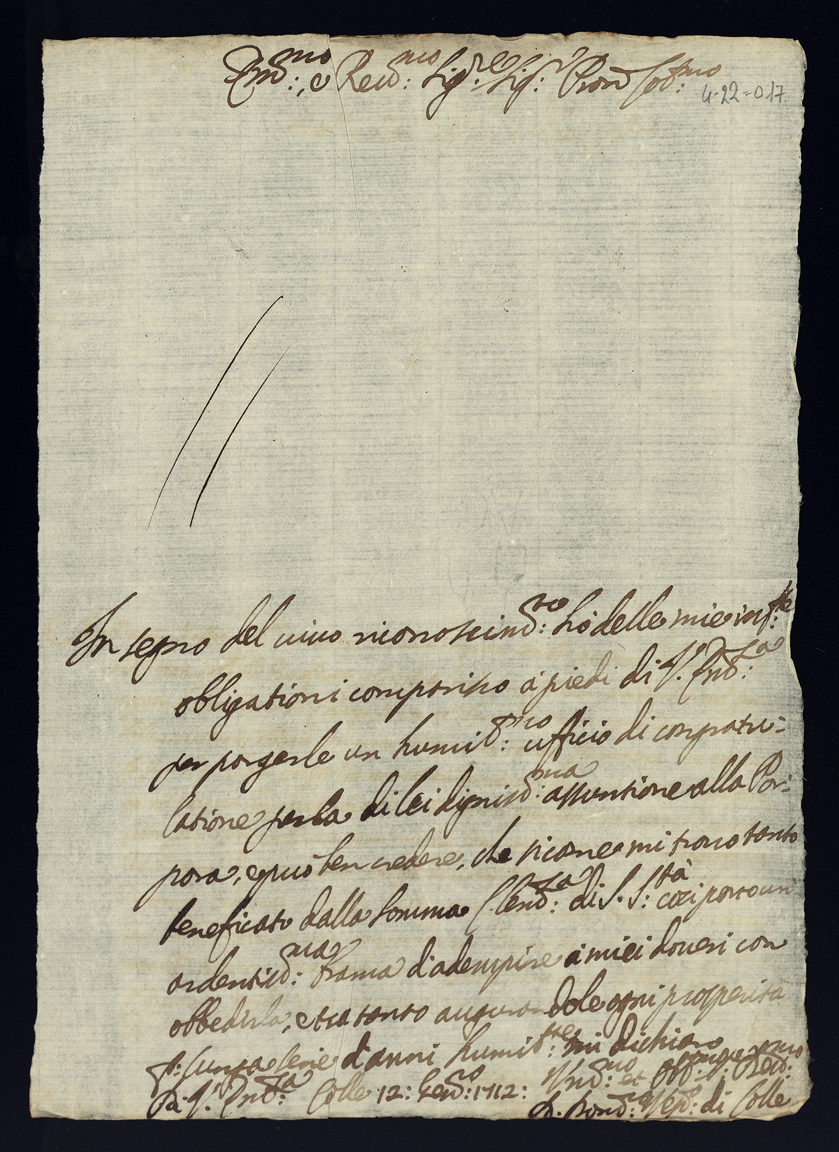 Em.mo, e Rev.mo Sig.re Sig.r Pron Col.mo
4-22-017
In segno del vivo riconoscim.to hò delle mie inf.te
obligationi comparisco à piedi di V. Em.za
per porgerle un humil.mo ufficio di congratu=
latione per la di lei dignis.ma assuntione alla Por:
pora, e può ben credere, che sicome mi trovo tanto
beneficato dalla somma Clem.za di S. S.tà così porto un
ardentis.ma brama d'adempire à miei doveri con
obbedirla, e tra tanto augurandole ogni prosperità
p: lunga serie d'anni humil.te mi dichiaro
Di V. Em.za Colle 12: Gen.o 1712: Hum.mo et Obb.
D. Vesc.o di Colle